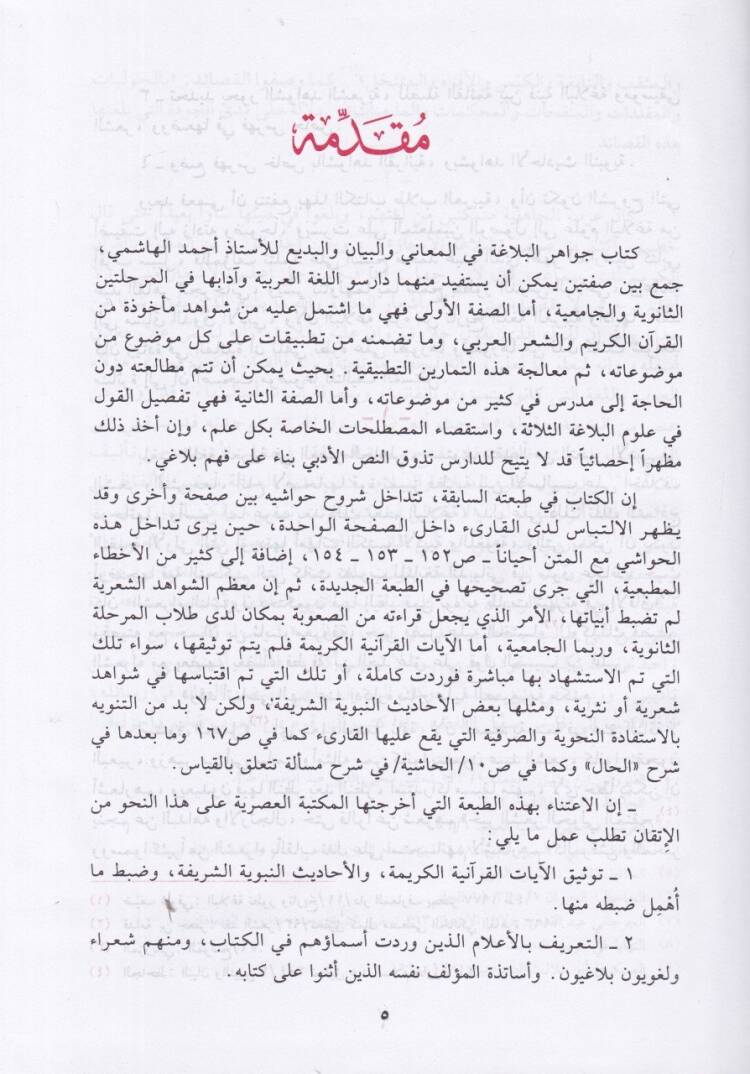 مُقَدِّمة
كتاب جواهر البلاغة في المعاني والبيان والبديع للأستاذ أحمد الهاشمي،
جمع بين صفتين يمكن أن يستفيد منهما دارسو اللغة العربية وآدابها في المرحلتين
الثانوية والجامعية، أما الصفة الأولى فهي ما اشتمل عليه من شواهد مأخوذة من
القرآن الكريم والشعر العربي، وما تضمنه من تطبيقات على كل موضوع من
موضوعاته، ثم معالجة هذه التمارين التطبيقية. بحيث يمكن أن تتم مطالعته دون
الحاجة إلى مدرس في كثير من موضوعاته، وأما الصفة الثانية فهي تفصيل القول
في علوم البلاغة الثلاثة، واستقصاء المصطلحات الخاصة بكل علم، وإن أخذ ذلك
مظهراً إحصائياً قد لا يتيح للدارس تذوق النص الأدبي بناء على فهم بلاغي.
إن الكتاب في طبعته السابقة، تتداخل شروح حواشيه بين صفحة وأخرى وقد
يظهر الالتباس لدى القارىء داخل الصفحة الواحدة، حين يرى تداخل هذه
الحواشي مع المتن أحياناً ـ ص١٥٢ ـ ١٥٣ ـ ١٥٤، إضافة إلى كثير من الأخطاء
المطبعية، التي جرى تصحيحها في الطبعة الجديدة، ثم إن معظم الشواهد الشعرية
لم تضبط أبياتها، الأمر الذي يجعل قراءته من الصعوبة بمكان لدى طلاب المرحلة
الثانوية، وربما الجامعية، أما الآيات القرآنية الكريمة فلم يتم توثيقها، سواء تلك
التي تم الاستشهاد بها مباشرة فوردت كاملة، أو تلك التي تم اقتباسها في شواهد
شعرية أو نثرية، ومثلها بعض الأحاديث النبوية الشريفة، ولكن لا بد من التنويه
بالاستفادة النحوية والصرفية التي يقع عليها القارىء كما في ص١٦٧ وما بعدها في
شرح «الحال» وكما في ص١٠/الحاشية/ في شرح مسألة تتعلق بالقياس.
ـ إن الاعتناء بهذه الطبعة التي أخرجتها المكتبة العصرية على هذا النحو من
الإتقان تطلب عمل ما يلي:
١ ـ توثيق الآيات القرآنية الكريمة، والأحاديث النبوية الشريفة، وضبط ما
أُهْمِل ضبطه منها.
٢ ـ التعريف بالأعلام الذين وردت أسماؤهم في الكتاب، ومنهم شعراء
ولغويون بلاغيون. وأساتذة المؤلف نفسه الذين أثنوا على كتابه.
٥